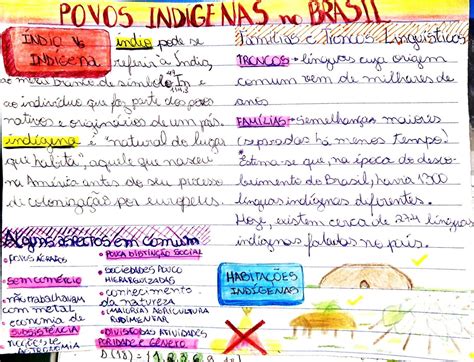 POVOS INDIGENAS no BRASIL
ÍNDIO VS INDÍGENA
índio pode se
referir à Índia,
ao meu branco de símbolo In e
ao indivíduo que faz parte dos povos
nativos e originários de um país.
indígena é "natural do lugar
que habita", aquele que nasceu
na América antes do seu processo
de colonização por europeus.
Famílias e Troncos Linguísticos
TRONCOS → línguas cuja origem
comum vem de milhares de
anos
FAMÍLIAS → Semelhanças maiores
(separadas há menos tempo).
Estima-se que, na época do desco-
brimento do Brasil, havia 1300
línguas indígenas diferentes.
Hoje, existem cerca de 274 línguas
indígenas faladas no país.
Alguns aspectos em comum
• POVOS ÁGRAFOS
• SEM COMÉRCIO
• não trabalhavam
com metal
• economia de
SUBSISTÊNCIA
• noções de
ASTRONOMIA
• POUCA DISTINÇÃO SOCIAL
• SOCIEDADES POUCO
HIERARQUIZADAS
• conhecimento
da natureza
• (MAIORIA) AGRICULTURA
RUDIMENTAR
• DIVISÃO DAS ATIVIDADES
POR IDADE E GÊNERO
HABITAÇÕES
INDÍGENAS